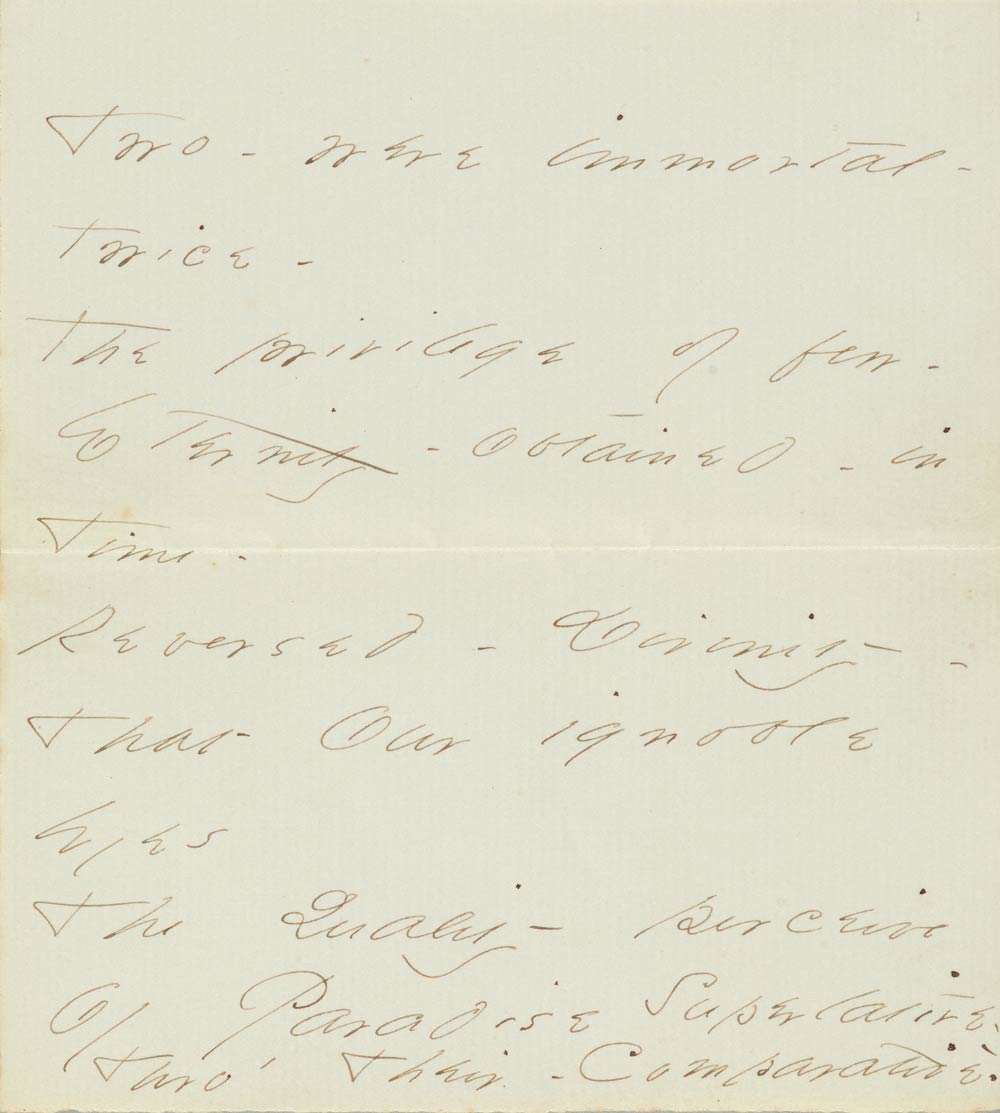 Two - were immortal -
twice -
The privilege of few -
Eternity - obtained - in
Time -
Reversed - Divinity -
That Our ignoble
Eyes
The Quality - perceive
Of Paradise Superlative -
thro' their - Comparative.